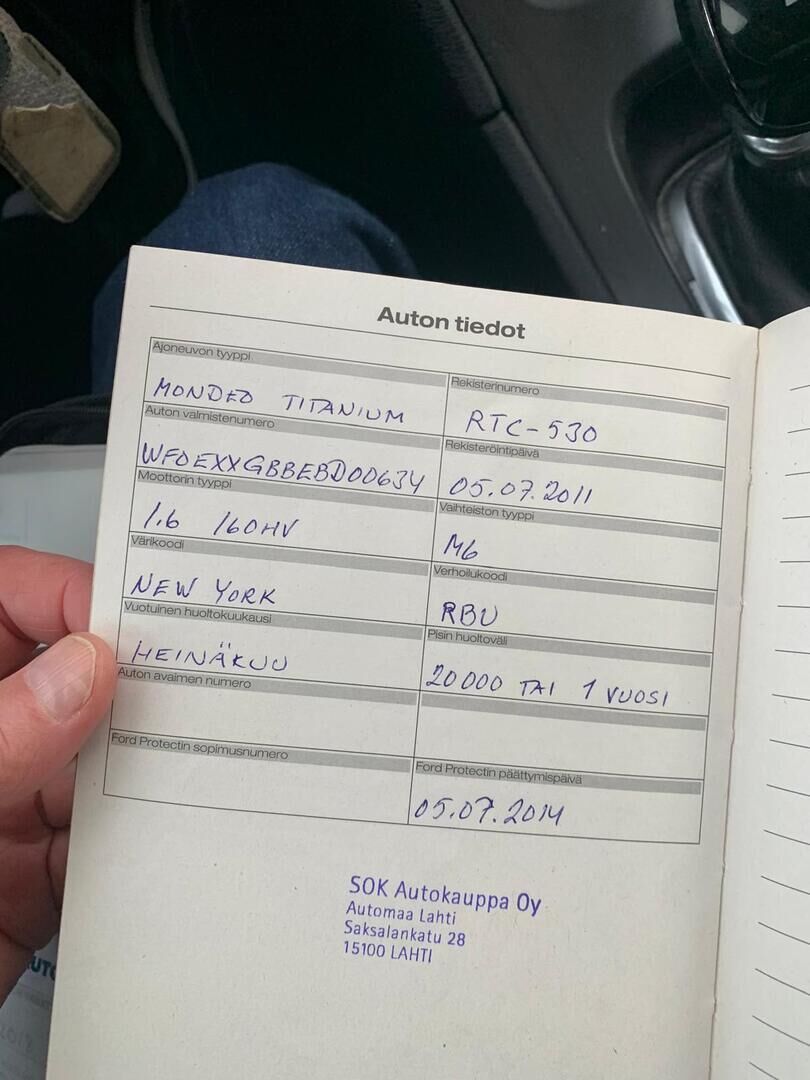 Auton tiedot
Ajoneuvon tyyppi
MONDEO TITANIUM
Rekisterinumero
RTC-530
Auton valmistenumero
WF0EXXGBBEBD00634
Rekisteröintipäivä
05.07.2011
Moottorin tyyppi
1.6 160HV
Vaihteiston tyyppi
M6
Värikoodi
NEW YORK
Verhoilukoodi
RBU
Vuotuinen huoltokuukausi
HEINÄKUU
Pisin huoltoväli
20000 TAI 1 VUOSI
Auton avaimen numero
Ford Protectin sopimusnumero
Ford Protectin päättymispäivä
05.07.2014
SOK Autokauppa Oy
Automaa Lahti
Saksalankatu 28
15100 LAHTI